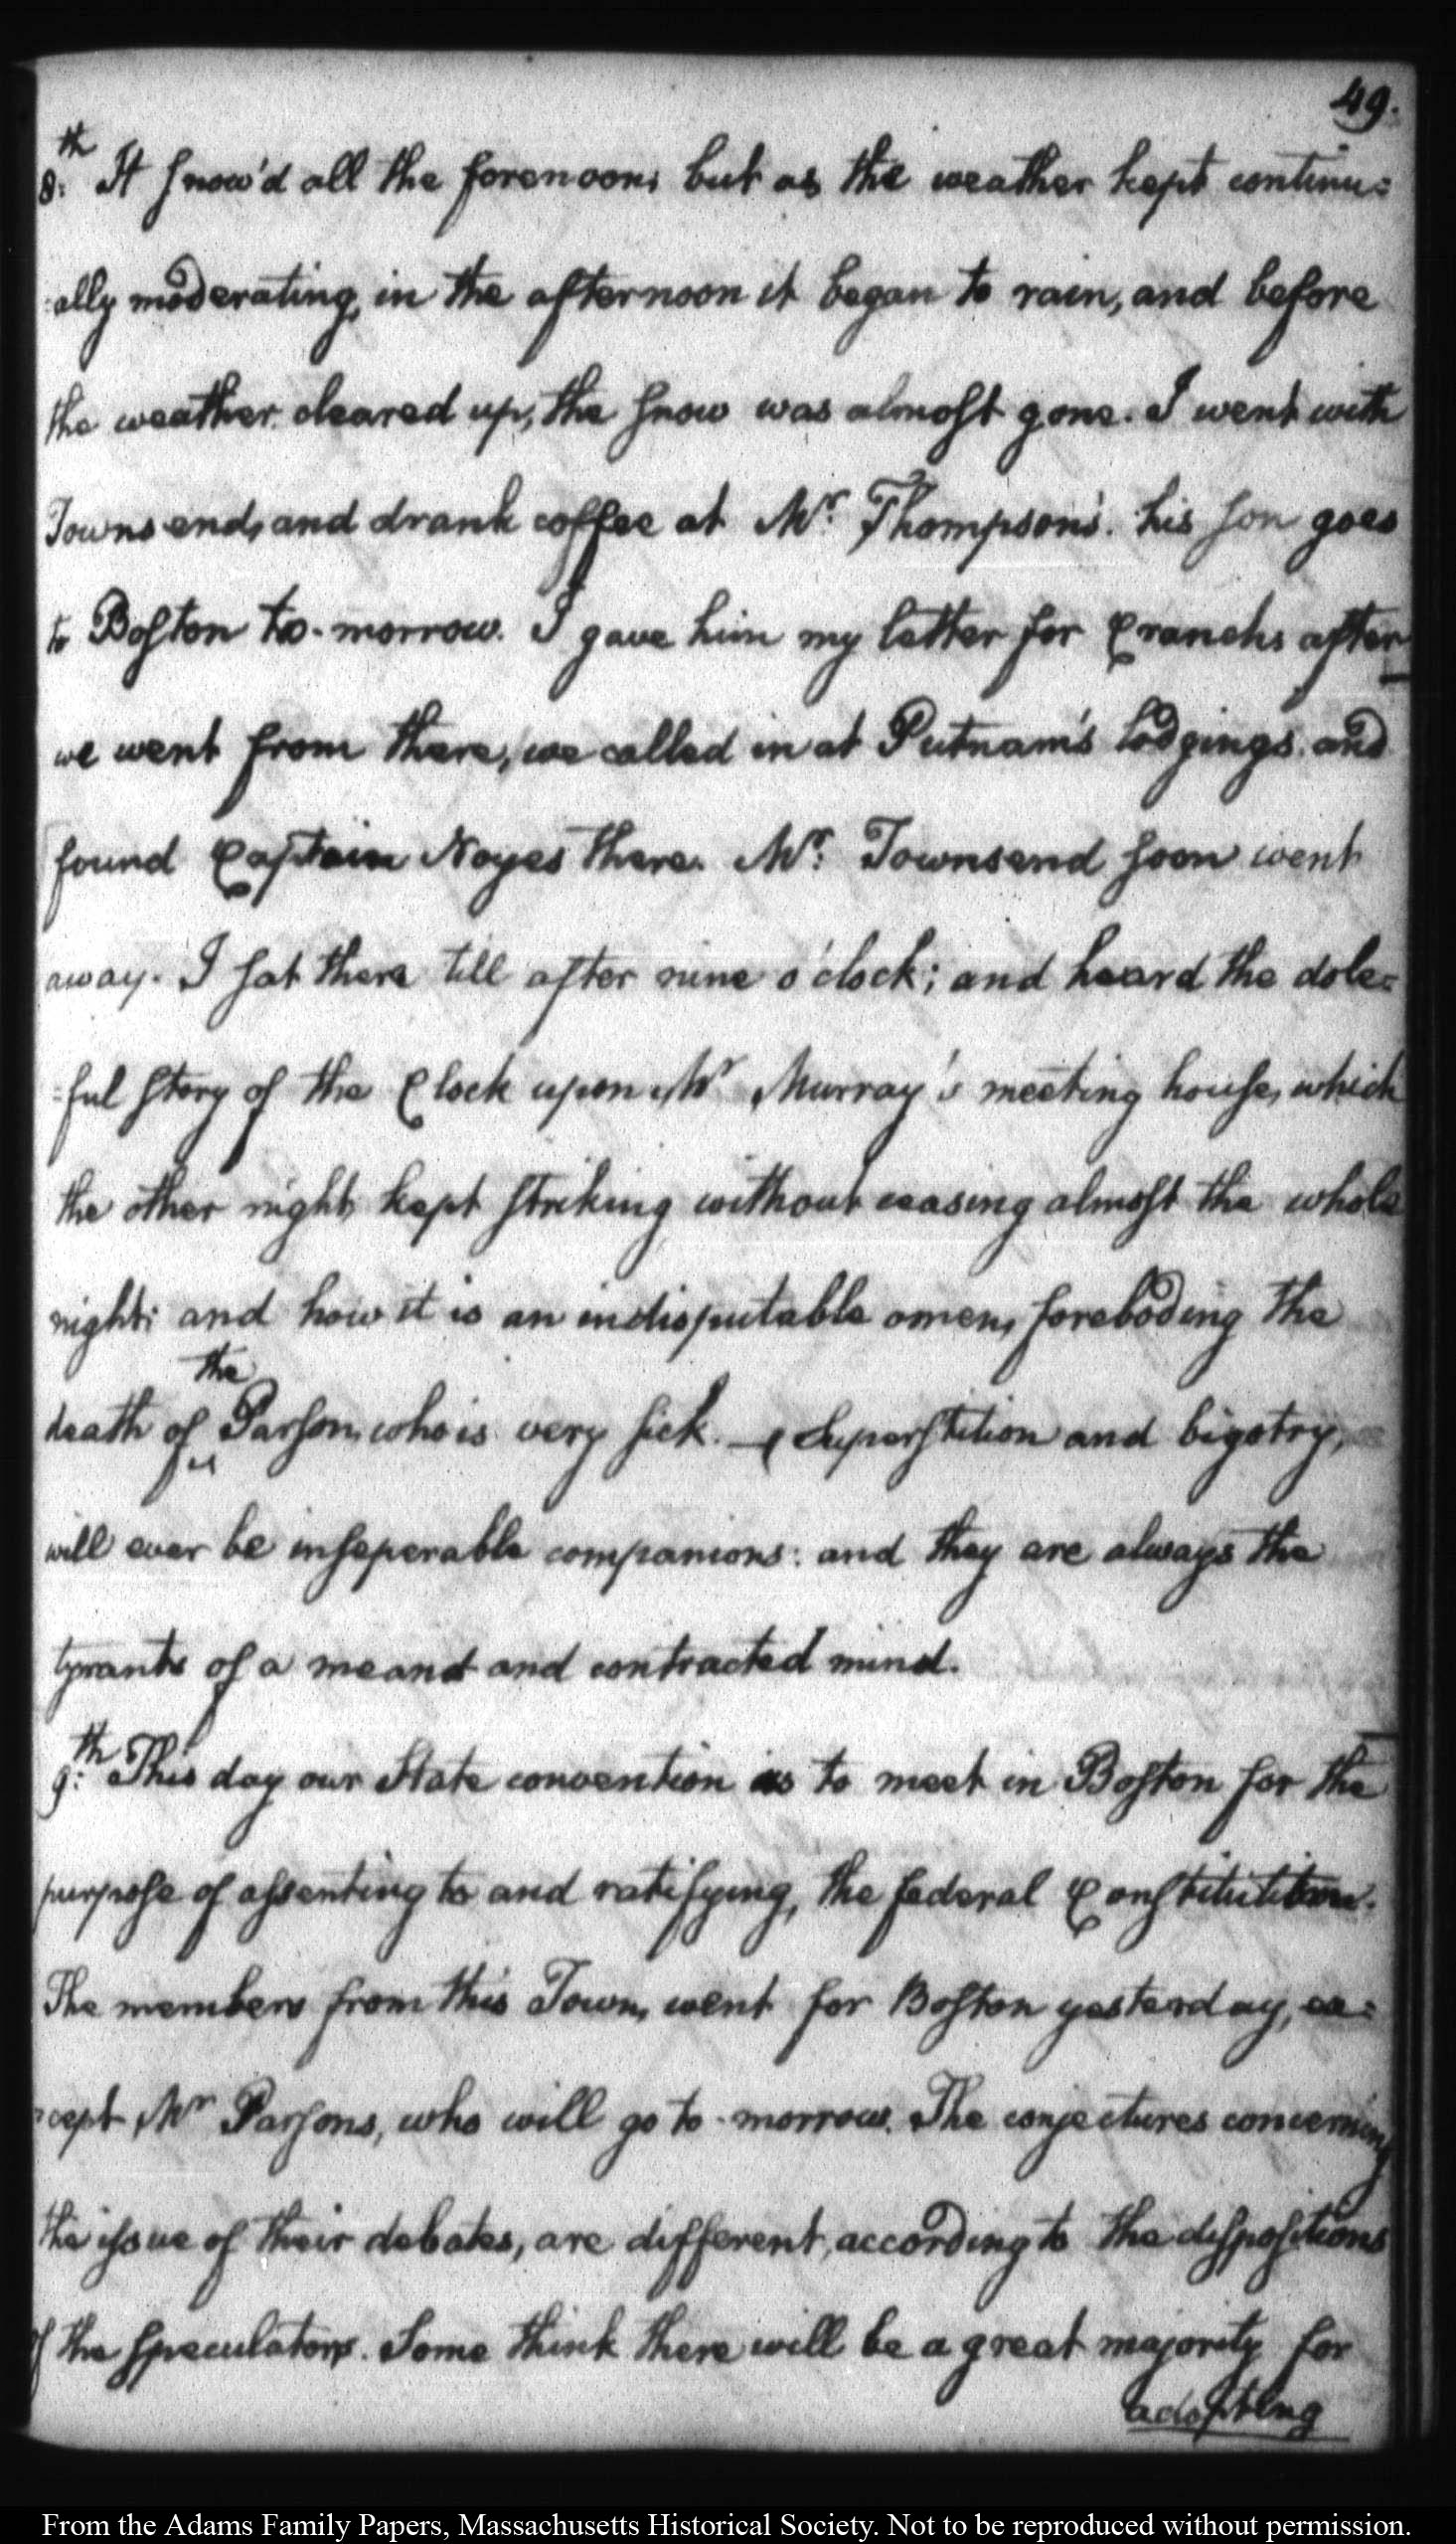 49.
8:th It snow'd all the forenoon; but as the weather kept continu=
ally moderating, in the afternoon it began to rain, and before
the weather cleared up, the snow was almost gone. I went with
Townsend, and drank coffee at Mr: Thompson's. his son goes
to Boston to-morrow. I gave him my letter for Cranch. after
we went from there, we called in at Putnam's lodgings. and
found Captain Noyes there. Mr: Townsend soon went
away. I sat there till after nine o'clock; and heard the dole=
=ful story of the Clock upon Mr Murray's meeting house, which
the other night, kept striking without ceasing almost the whole
night; and how it is an indisputable omen, foreboding the
death of the Parson, who is very sick. — Superstition and bigotry,
will ever be inseperable companions: and they are always the
tyrants of a meant and contracted mind.
9:th This day our State convention is to meet in Boston for the
purpose of assenting to and ratifying, the federal Constitution.
The members from this Town, went for Boston yesterday, ex=
cept Mr Parsons, who will go to-morrow. The conjectures concerning
the issue of their debates, are different, according to the dispositions
of the speculators. Some think there will be a great majority for
adopting
From the Adams Family Papers, Massachusetts Historical Society. Not to be reproduced without permission.